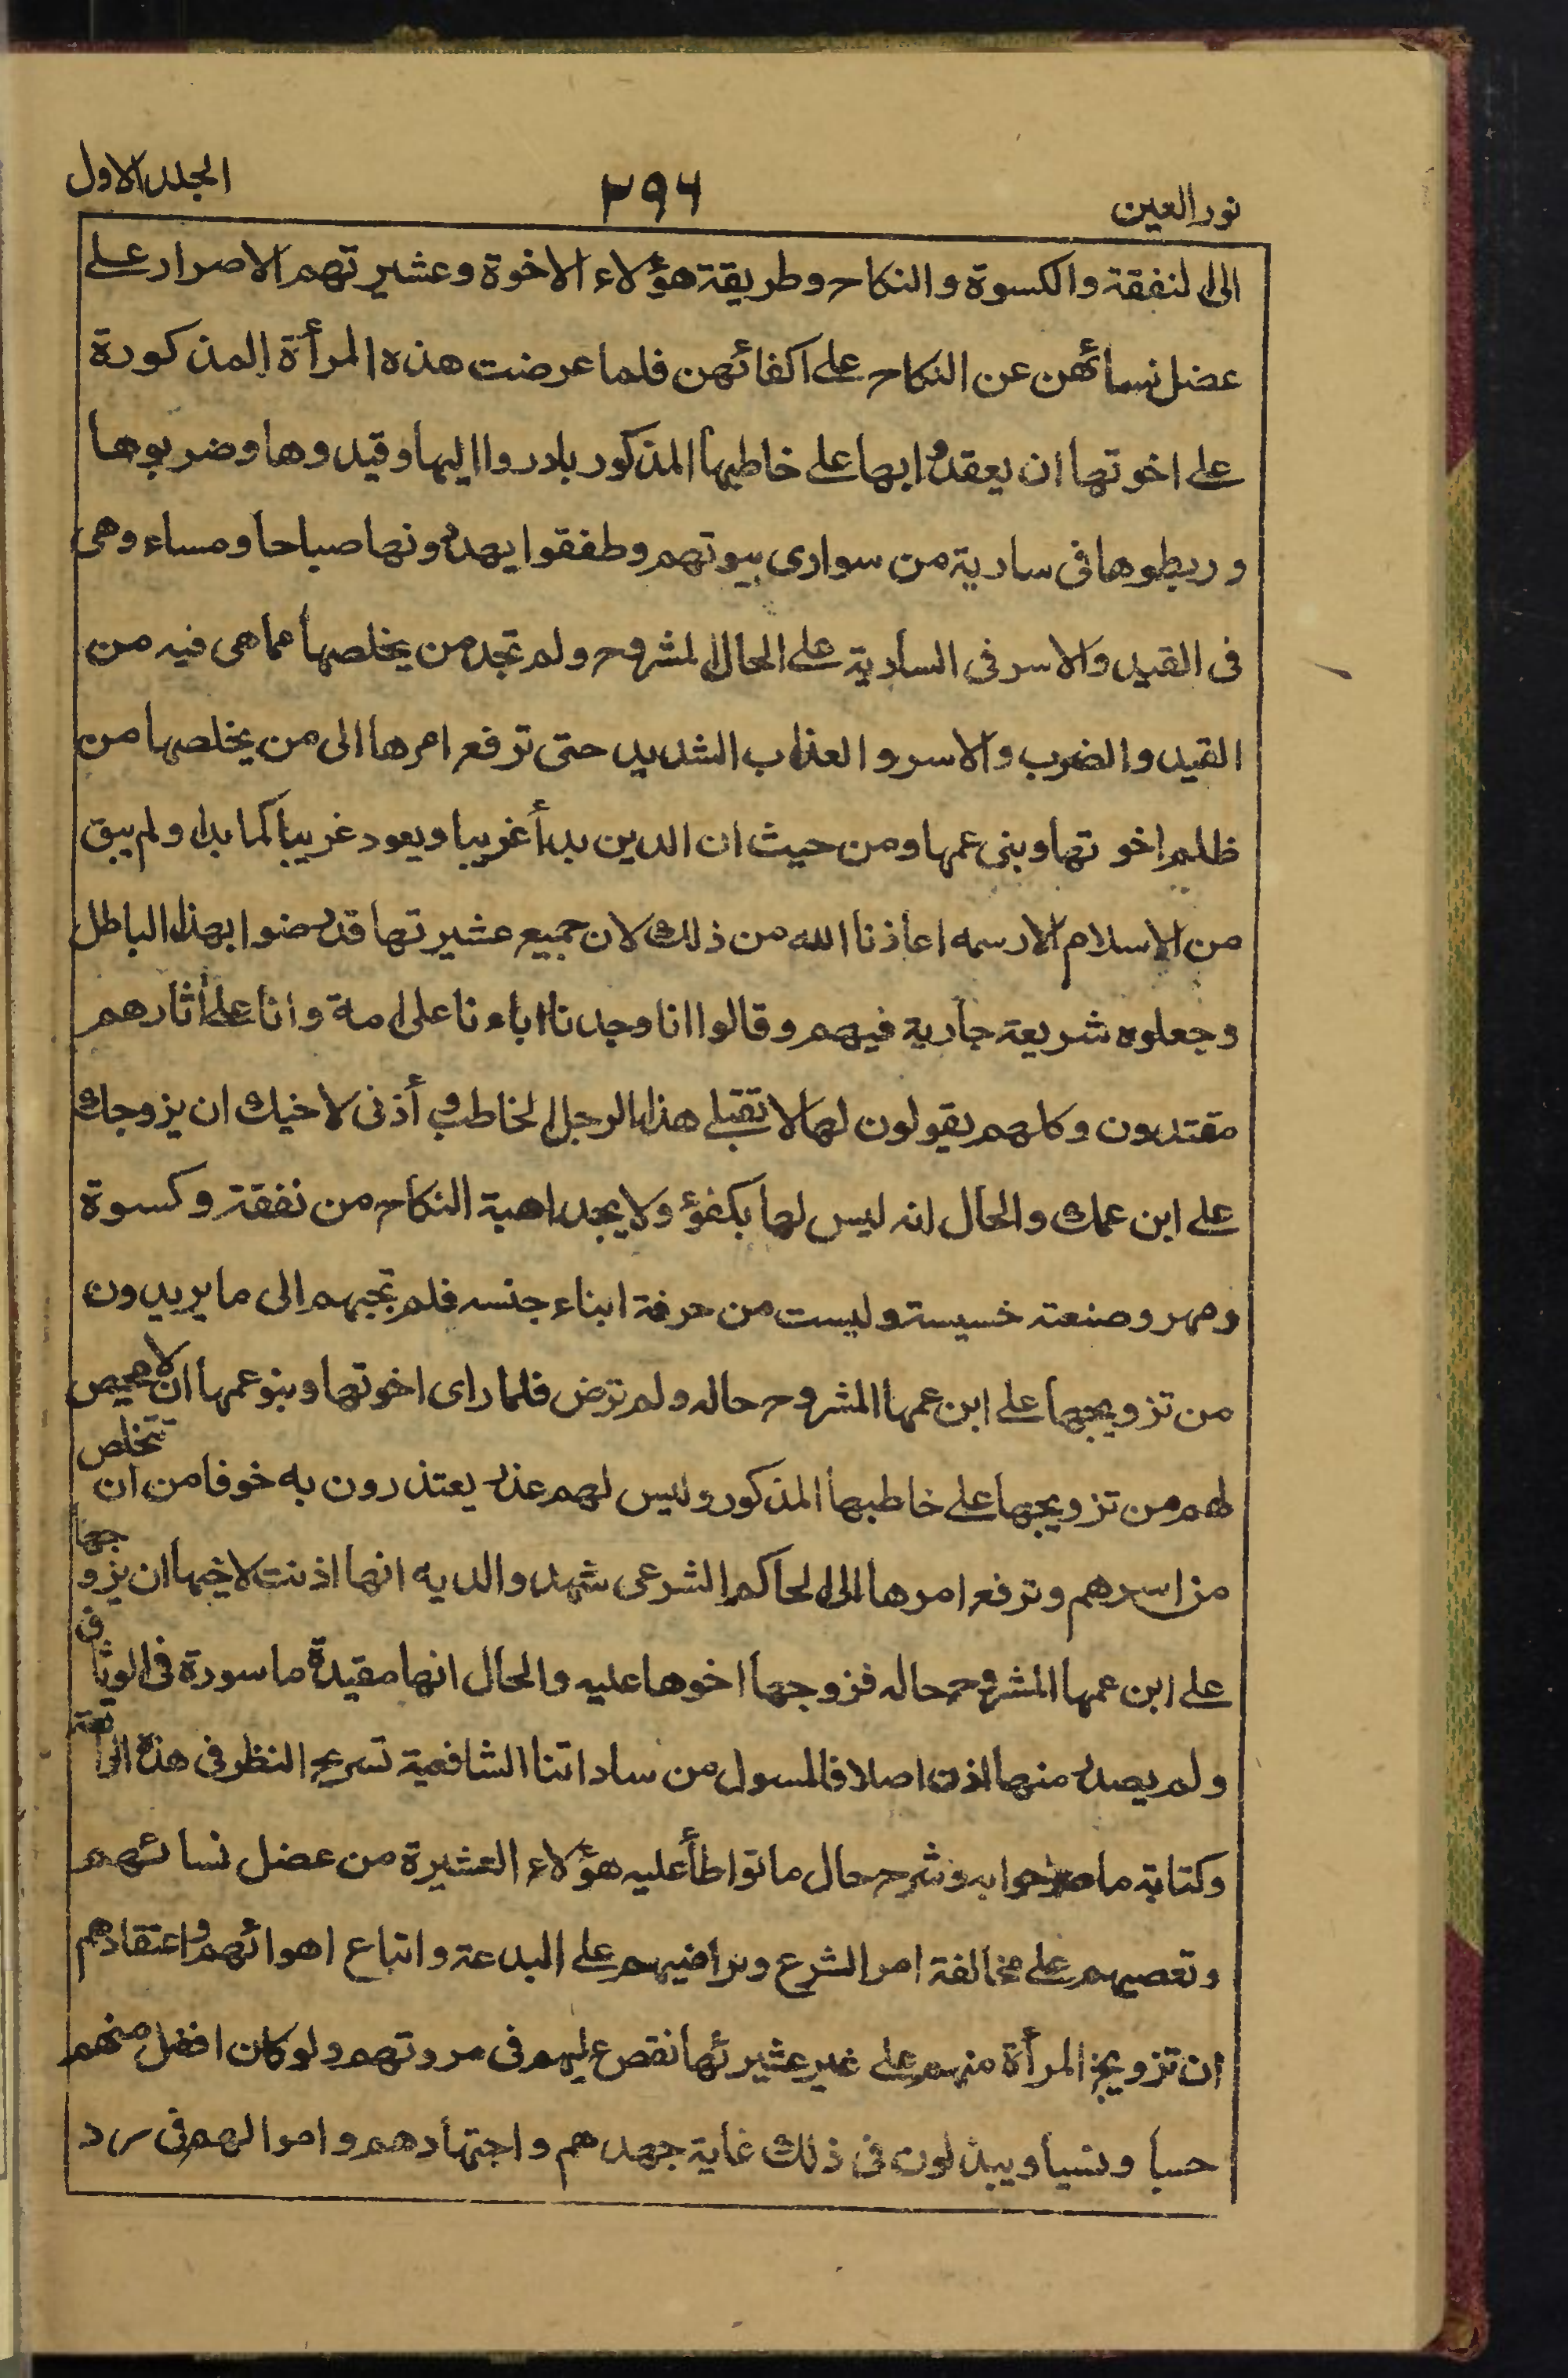 نور العين ٢٩٦ الجلد الاول
الى النفقة والكسوة والنكاح وطريقة هؤلاء الاخوة وعشيرتهم الاصرار على
عضل نسائهن عن النكاح على اكفائهن فلما عرضت هذه المرأة المذكورة
على اخوتها ان يعقدوا بها على خاطبها المذكور بادروا اليها وقيدوها وضربوها
وربطوها فى سارية من سوارى بيوتهم وطفقوا يهددونها صباحا ومساء وهى
فى القيد والاسر فى السارية على الحال المشروح ولم تجد من يخلصها مما هى فيه من
القيد والضرب والاسر والعذاب الشديد حتى ترفع امرها الى من يخلصها من
ظلم اخوتها وبنى عمها ومن حيث ان الدين بدأ غريبا ويعود غريبا كما بدا ولم يبق
من الاسلام الا رسمه اعاذنا الله من ذلك لان جميع عشيرتها قد رضوا بهذا الباطل
وجعلوه شريعة جارية فيهم وقالوا انا وجدنا اباءنا على امة وانا على أثارهم
مقتدون وكلهم يقولون لها لا تقبلى هذا الرجل الخاطب و أذنى لاخيك ان يزوجك
على ابن عمك والحال انه ليس لها بكفؤ ولا يجد اهبة النكاح من نفقة وكسوة
ومهر وصنعته خسيسة وليست من حرفة ابناء جنسه فلم تجبهم الى ما يريدون
من تزويجها على ابن عمها المشروح حاله ولم ترض فلما راى اخوتها وبنو عمها ان لا محيص
لهم من تزويجها على خاطبها المذكور وليس لهم عذر يعتذرون به خوفا من ان تتخلص
من اسرهم وترفع امرها الى الحاكم الشرعى شهد والديه انها اذنت لاخيها ان يزوجها
على ابن عمها المشروح حاله فزوجها اخوها عليه والحال انها مقيدة ماسورة فى الوثاق
ولم يصدر منها اذن اصلا فالمسول من ساداتنا الشافعية تسريح النظر فى هذه الواقعة
وكتابة ما جوابه وشرح حال ما تواطأ عليه هؤلاء العشيرة من عضل نسائهم
وتعصبهم على مخالفة امر الشرع وتراضيهم على البدعة واتباع اهوائهم واعتقادهم
ان تزويج المرأة منهم على غير عشيرتها نقص عليهم فى مروتهم ولو كان افضل منهم
حسبا ونسبا ويبذلون فى ذلك غاية جهدهم واجتهادهم واموالهم فى رد